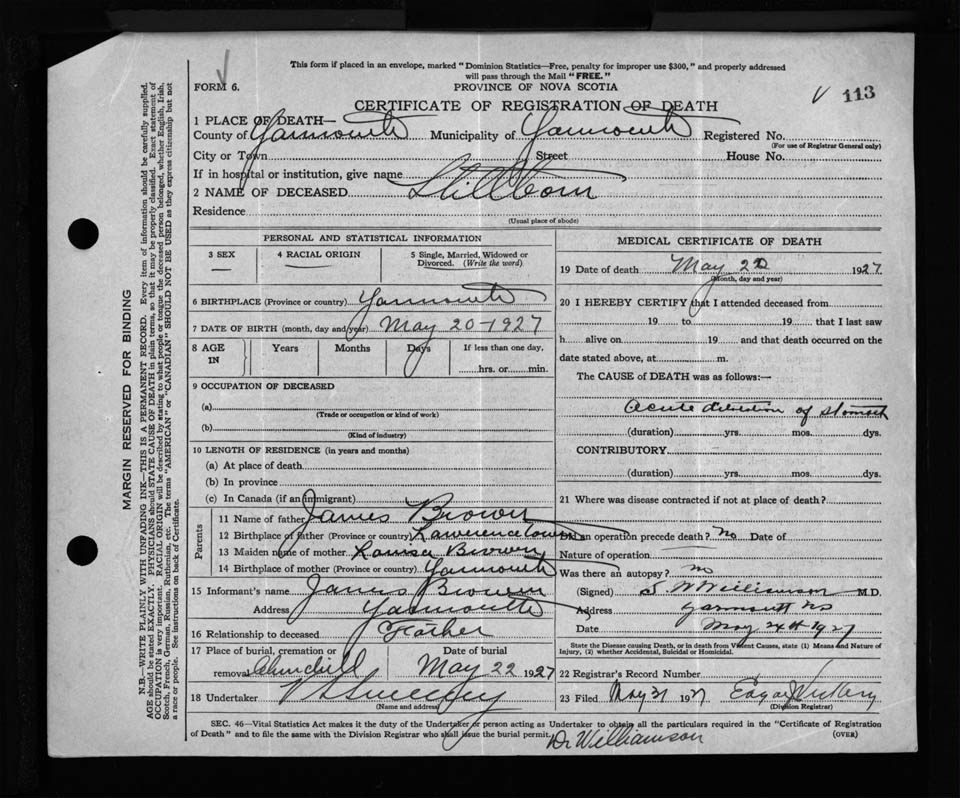 This form if placed in an envelope, marked "Dominion Statistics—Free, penalty for improper use $300," and properly addressed
will pass through the Mail "FREE."
FORM 6.
PROVINCE OF NOVA SCOTIA
113
CERTIFICATE OF REGISTRATION OF DEATH
1 PLACE OF DEATH—
County of Yarmouth Municipality of Yarmouth Registered No.
(For use of Registrar General only)
City or Town Street House No.
If in hospital or institution, give name
2 NAME OF DECEASED Stillborn
Residence
(Usual place of abode)
PERSONAL AND STATISTICAL INFORMATION
3 SEX 4 RACIAL ORIGIN 5 Single, Married, Widowed or Divorced. (Write the word)
6 BIRTHPLACE (Province or country) Yarmouth
7 DATE OF BIRTH (month, day and year) May 20-1927
8 AGE IN Years Months Days If less than one day,
hrs. or min.
9 OCCUPATION OF DECEASED
(a)
(Trade or occupation or kind of work)
(b)
(Kind of industry)
10 LENGTH OF RESIDENCE (in years and months)
(a) At place of death
(b) In province
(c) In Canada (if an immigrant)
Parents
11 Name of father James Brown
12 Birthplace of father (Province or country) Lawrencetown
13 Maiden name of mother Louisa Brown
14 Birthplace of mother (Province or country) Yarmouth
15 Informant's name James Brown
Address Yarmouth
16 Relationship to deceased Father
17 Place of burial, cremation or removal Date of burial
May 22 1927
18 Undertaker V S Sweeney
(Name and address)
MEDICAL CERTIFICATE OF DEATH
19 Date of death May 20 1927
(Month, day and year)
20 I HEREBY CERTIFY that I attended deceased from
19 to 19 that I last saw
h alive on 19 and that death occurred on the
date stated above, at m.
The CAUSE of DEATH was as follows:—
Acute dilatation of stomach
(duration) yrs. mos. dys.
CONTRIBUTORY
(duration) yrs. mos. dys.
21 Where was disease contracted if not at place of death?
Did an operation precede death? No Date of
Nature of operation
Was there an autopsy? no
(Signed) S. W Williamson M.D.
Address Yarmouth NS
Date May 24th 1927
State the Disease causing Death, or in death from Violent Causes, state (1) Means and Nature of
Injury, (2) whether Accidental, Suicidal or Homicidal.
22 Registrar's Record Number
23 Filed May 31 1927 Edgar
(Division Registrar)
SEC. 46—Vital Statistics Act makes it the duty of the Undertaker or person acting as Undertaker to obtain all the particulars required in the "Certificate of Registration
of Death" and to file the same with the Division Registrar who shall issue the burial permit.
(OVER)
Dr Williamson
MARGIN RESERVED FOR BINDING
N.B.—WRITE PLAINLY WITH UNFADING INK—THIS IS A PERMANENT RECORD. Every item of information should be carefully supplied.
AGE should be stated EXACTLY. PHYSICIANS should STATE CAUSE OF DEATH in plain terms, so that it may be properly classified. Exact statement of
OCCUPATION is very important. RACIAL ORIGIN will be described by stating to what people or tongue the deceased person belonged, whether English, Irish,
Scotch, French, German, Russian, Ruthenian, etc. The terms "AMERICAN" or "CANADIAN" SHOULD NOT BE USED as they express citizenship but not
a race or people. See instructions on back of Certificate.